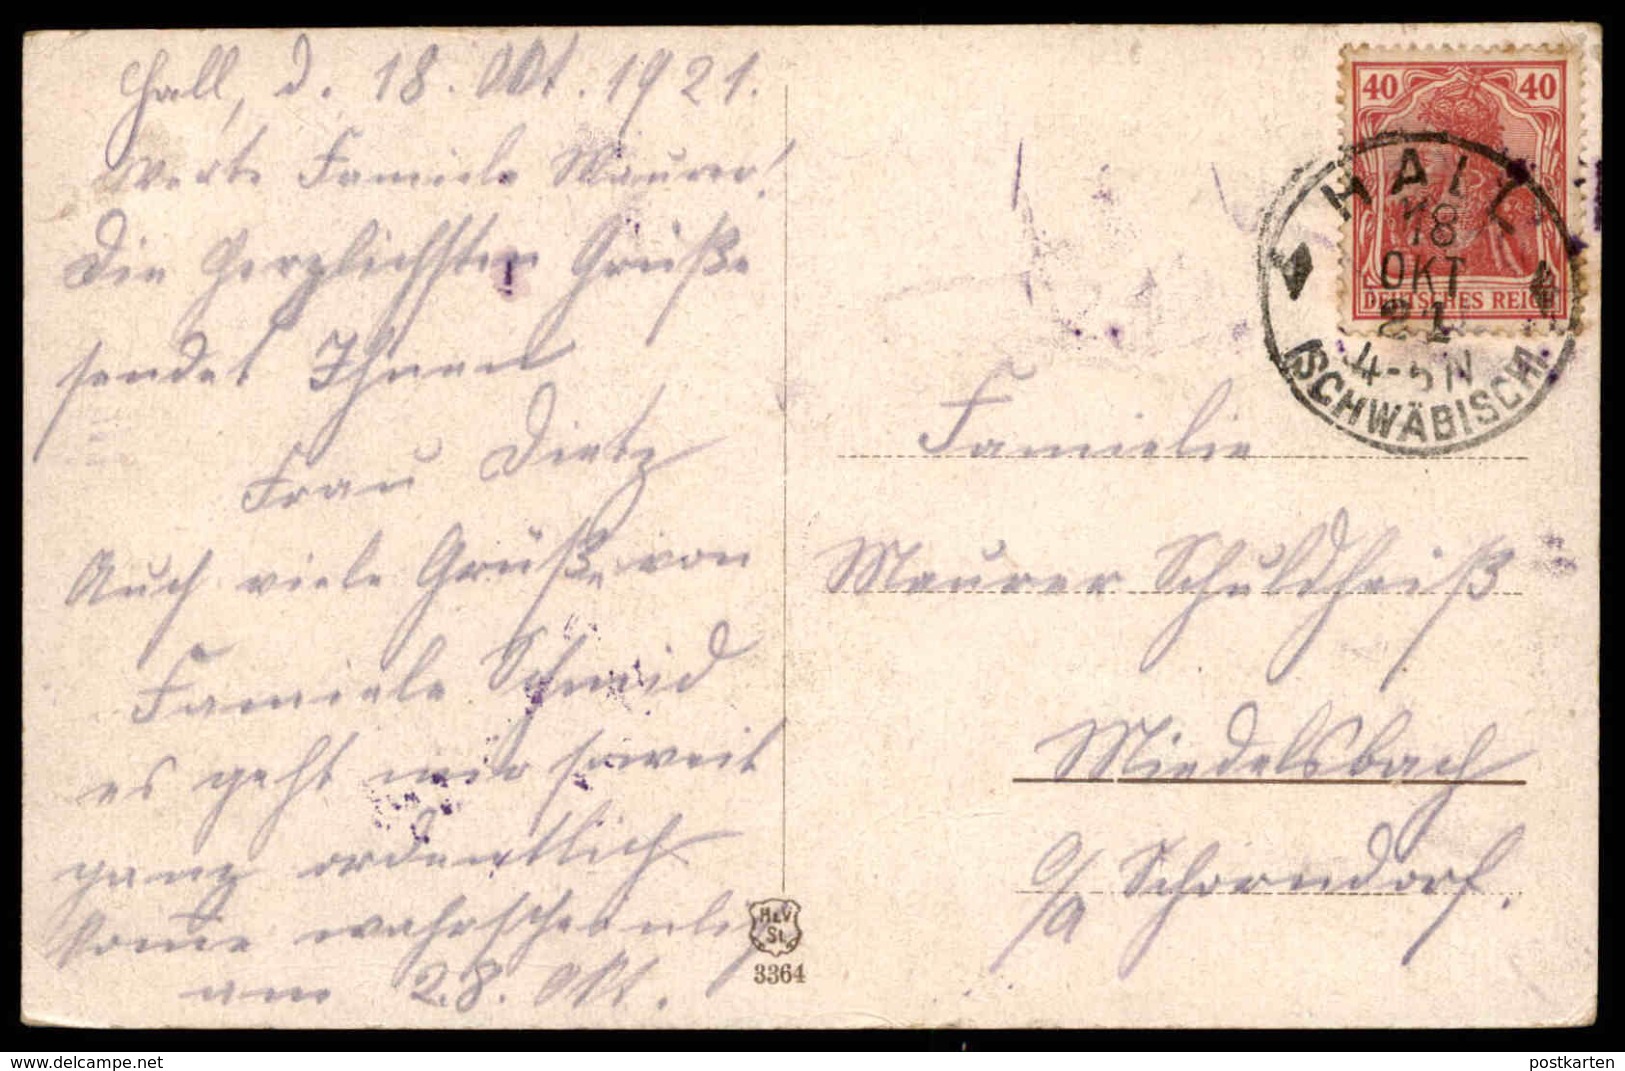 Hall, d. 18. Okt. 1921.
Werte Famiele Maurer!
Die Herzlichsten Grüße
sendet Ihnen
Frau Dietz
Auch viele Grüße von
Famiele Schmid
es geht mir soweit
ganz ordentlich
kome wahrscheinlich
am 28. Okt.
H&V
St.
3364
40 40
DEUTSCHES REICH
HALL
18
OKT
21
4-5 N
(SCHWÄBISCH)
Familie
Maurer Schuldheiß
Miedelsbach
O/a Schorndorf.
postkarten